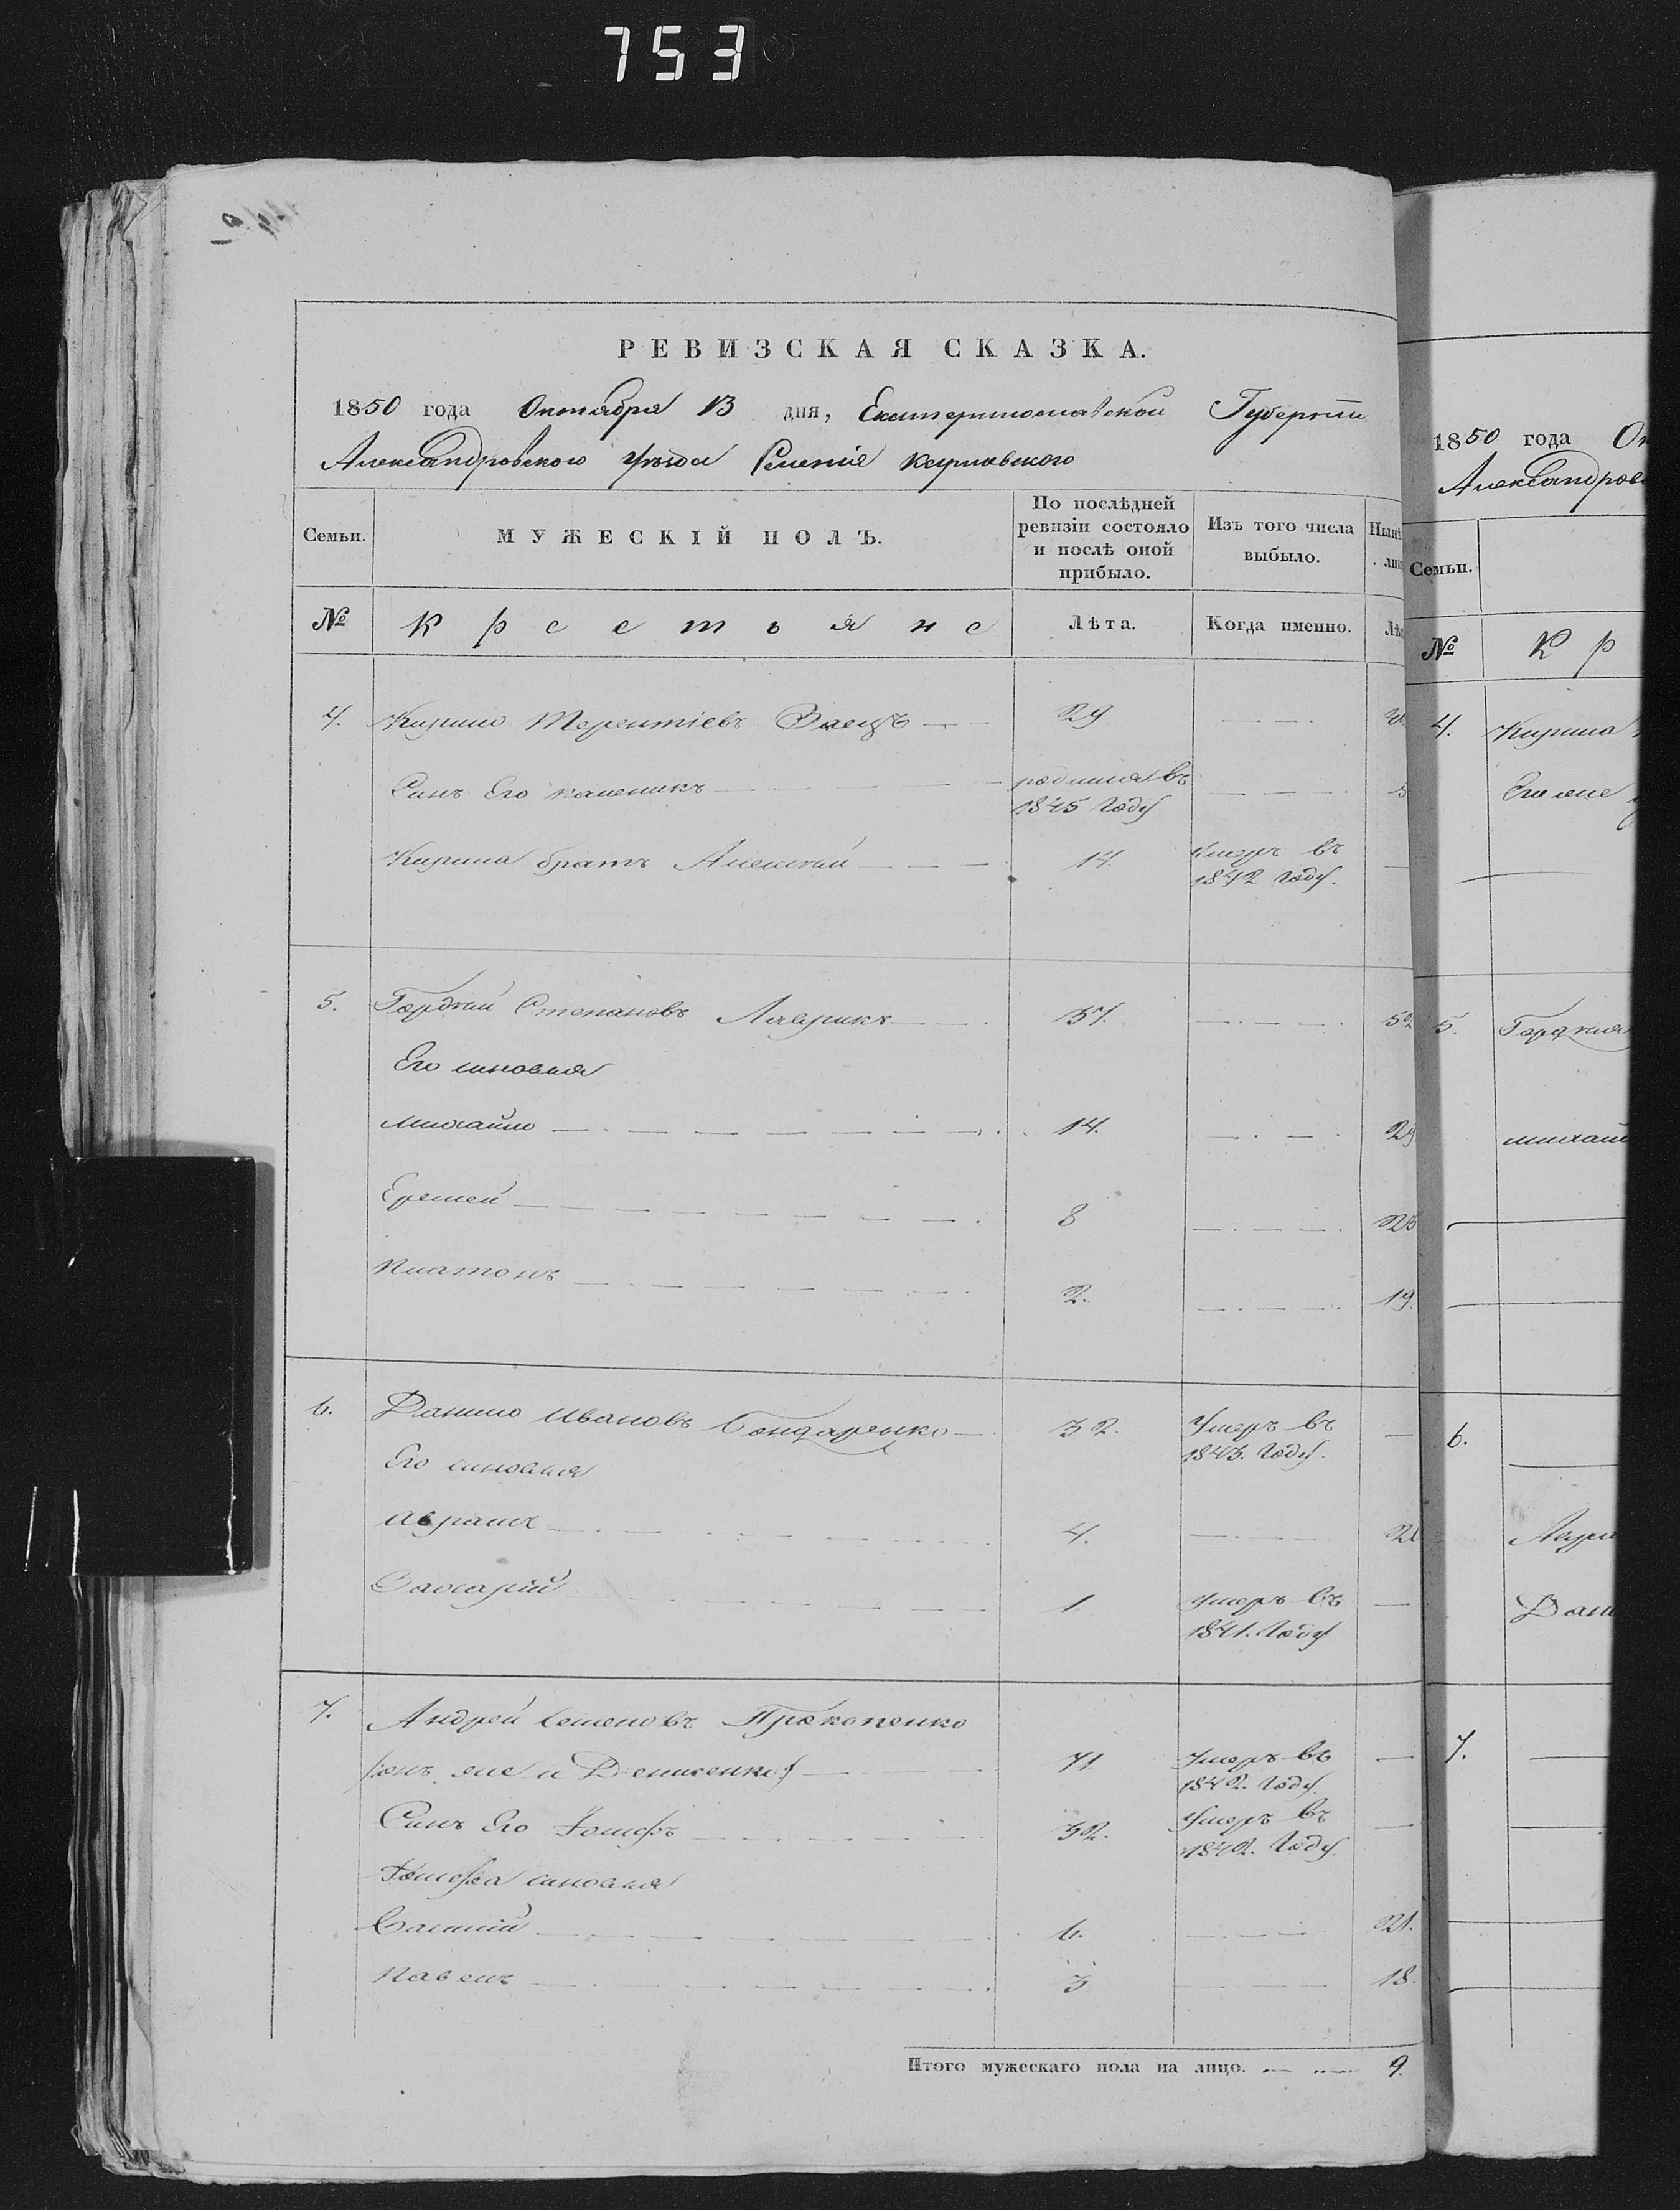 753
РЕВИЗСКАЯ СКАЗКА.
1850 года Октября 13 дня, Екатеринославской Губерніи
Александровского уѣзда Селенія
Семьи.
МУЖЕСКІЙ ПОЛЪ.
По послѣдней ревизіи состояло и послѣ оной прибыло.
Изъ того числа выбыло.
№
Крестьяне
Лѣта.
Когда именно.
4. Кирило Терентіевъ Заецъ 29
Синъ Его каленикъ родился въ 1845 году
Кирила братъ Алексѣй 14. умеръ въ 1842 году.
5. Гордѣй Степановъ Лаврикъ 37.
Его синовья
михайло 14. 29
Еремей 8 23
платонъ 2. 19.
6. Данило Ивановъ Бондаренко 32. умеръ въ 1843. году.
Его синовья
аврамъ 4.
Захарій 1. умеръ въ 1841. году
7. Андрей Семеновъ Прокопенко
онъ же и Денисенко 71. умеръ въ 1842. году
Синъ Его Іосифъ 32. умеръ въ 1842. году
Іосифа синовья
6. 21.
павелъ 3 18.
Итого мужескаго пола на лицо. 9.
1850 года
Семьи.
№
К р
4. Кирила
Его же
5.
6.
7.